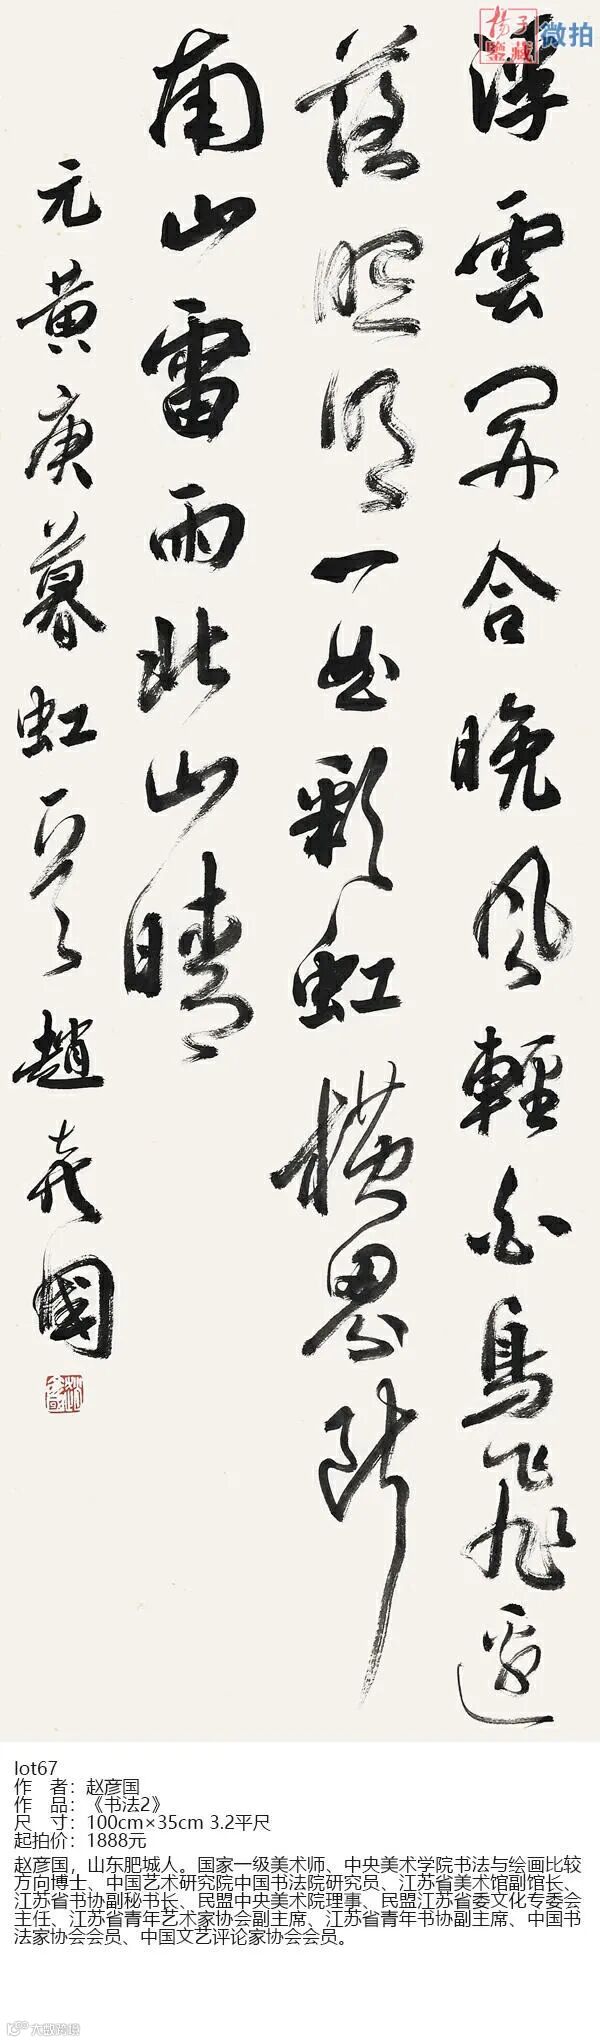 揚子
鑒藏
微拍
浮雲開合晚風輕白鳥飛邊
落照明一曲彩虹橫界斷
南山雷雨北山晴
元黄庚暮虹一首趙彦國
lot67
作 者：赵彦国
作 品：《书法2》
尺 寸：100cm×35cm 3.2平尺
起拍价：1888元
赵彦国，山东肥城人。国家一级美术师、中央美术学院书法与绘画比较
方向博士、中国艺术研究院中国书法院研究员、江苏省美术馆副馆长、
江苏省书协副秘书长、民盟中央美术院理事、民盟江苏省委文化专委会
主任、江苏省青年艺术家协会副主席、江苏省青年书协副主席、中国书
法家协会会员、中国文艺评论家协会会员。
大数跨境